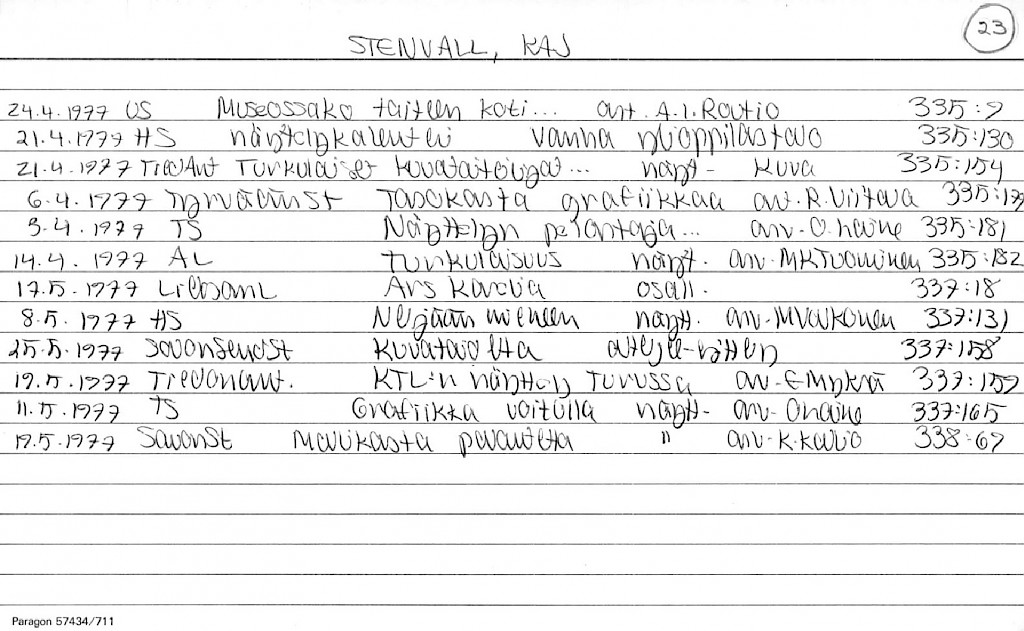 23
STENVALL, KAJ
24.4.1977 US Museossako taiteen koti... art. A.I. Routio 335:9
21.4.1977 HS näyttelykalenteri vanha ylioppilastalo 335:130
21.4.1977 Turkulaiset kuvataiteilijat... näyt- kuva 335:154
6.4.1977 Tyrväänst Tasokasta grafiikkaa arv. R. Viitala
3.4.1977 TS Näyttelyn pelastaja... arv- O. Laine 335:181
14.4. 1977 AL turkulaisuus näyt. arv- MKTuominen 335:182
17.5-1977 Länsisaml Ars Karelia osall. 337:18
8.5. 1977 HS Neljään mieheen näytt. arv- MValkonen 337:131
25.5.1977 Savonsendst kuvataidetta ateljee-näyttely 337:158
19.5.1977 KTL:n näyttely Turussa arv- E Mykrä 337:159
11.5.1977 TS Grafiikka voitolla näytt- arv- O Laine 337:165
19.5.1977 SavonSt Maukasta " arv- K. Kallio 338:67
Paragon 57434/711